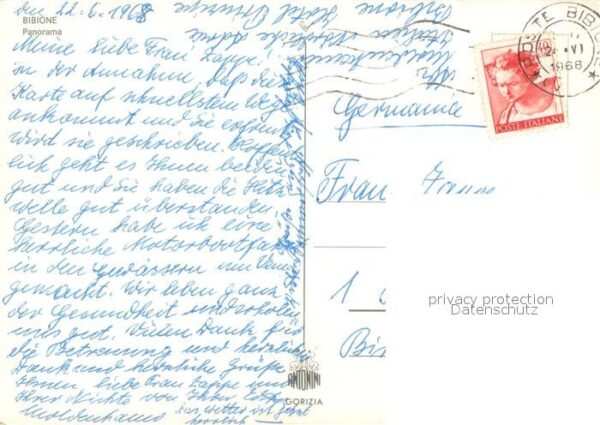 BIBIONE
Panorama
den 22.6.1968
Meine liebe Frau Zappe!
in der Annahme, daß die
Karte auf schnellstem Weg
ankommt und sie erfreu
wird sie geschrieben. Hoffent
lich geht es Ihnen beiden
gut und Sie haben die Hitz
welle gut überstanden.
Gestern habe ich eine
herrliche Motorbootfahrt
in den Gewässern um Vene
gemacht. Wir leben ganz
der Gesundheit und erholen
uns gut. Vielen Dank für
die Betreuung und herzlich
Dank und herzliche Grüße
Ihnen, liebe Frau Zappe und
Ihrer Nichte von Ihrer
Das Wetter ist
herrlich
Hotel
Bibione
Italien
POSTE BIBIONE
VI
1968
POSTE ITALIANE
Germania
Frau
1
privacy protection
Datenschutz
ANTONINI
GORIZIA